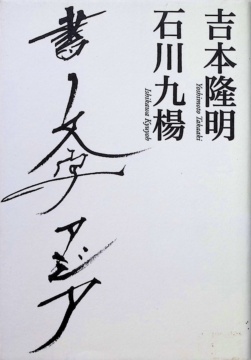 吉本隆明
Yoshimoto Takaaki
石川九楊
Ishikawa Kyuyoh
書 文字 アジア